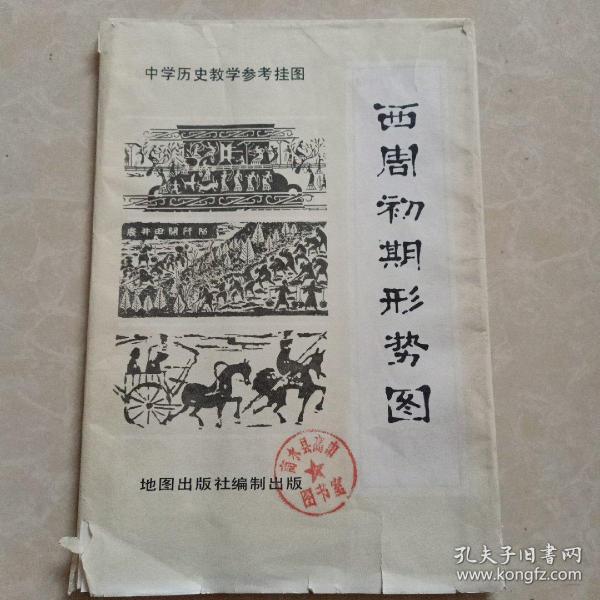 中学历史教学参考挂图
西周初期形势图
廢井田開阡陌
地图出版社编制出版
图书室
孔夫子旧书网
www.kongfz.com